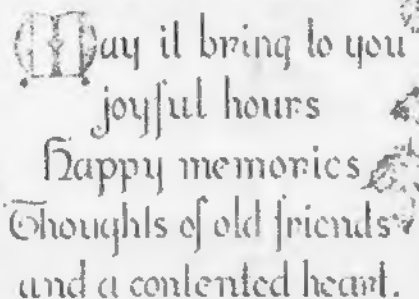 May it bring to you
joyful hours
Happy memories
Thoughts of old friends
and a contented heart.